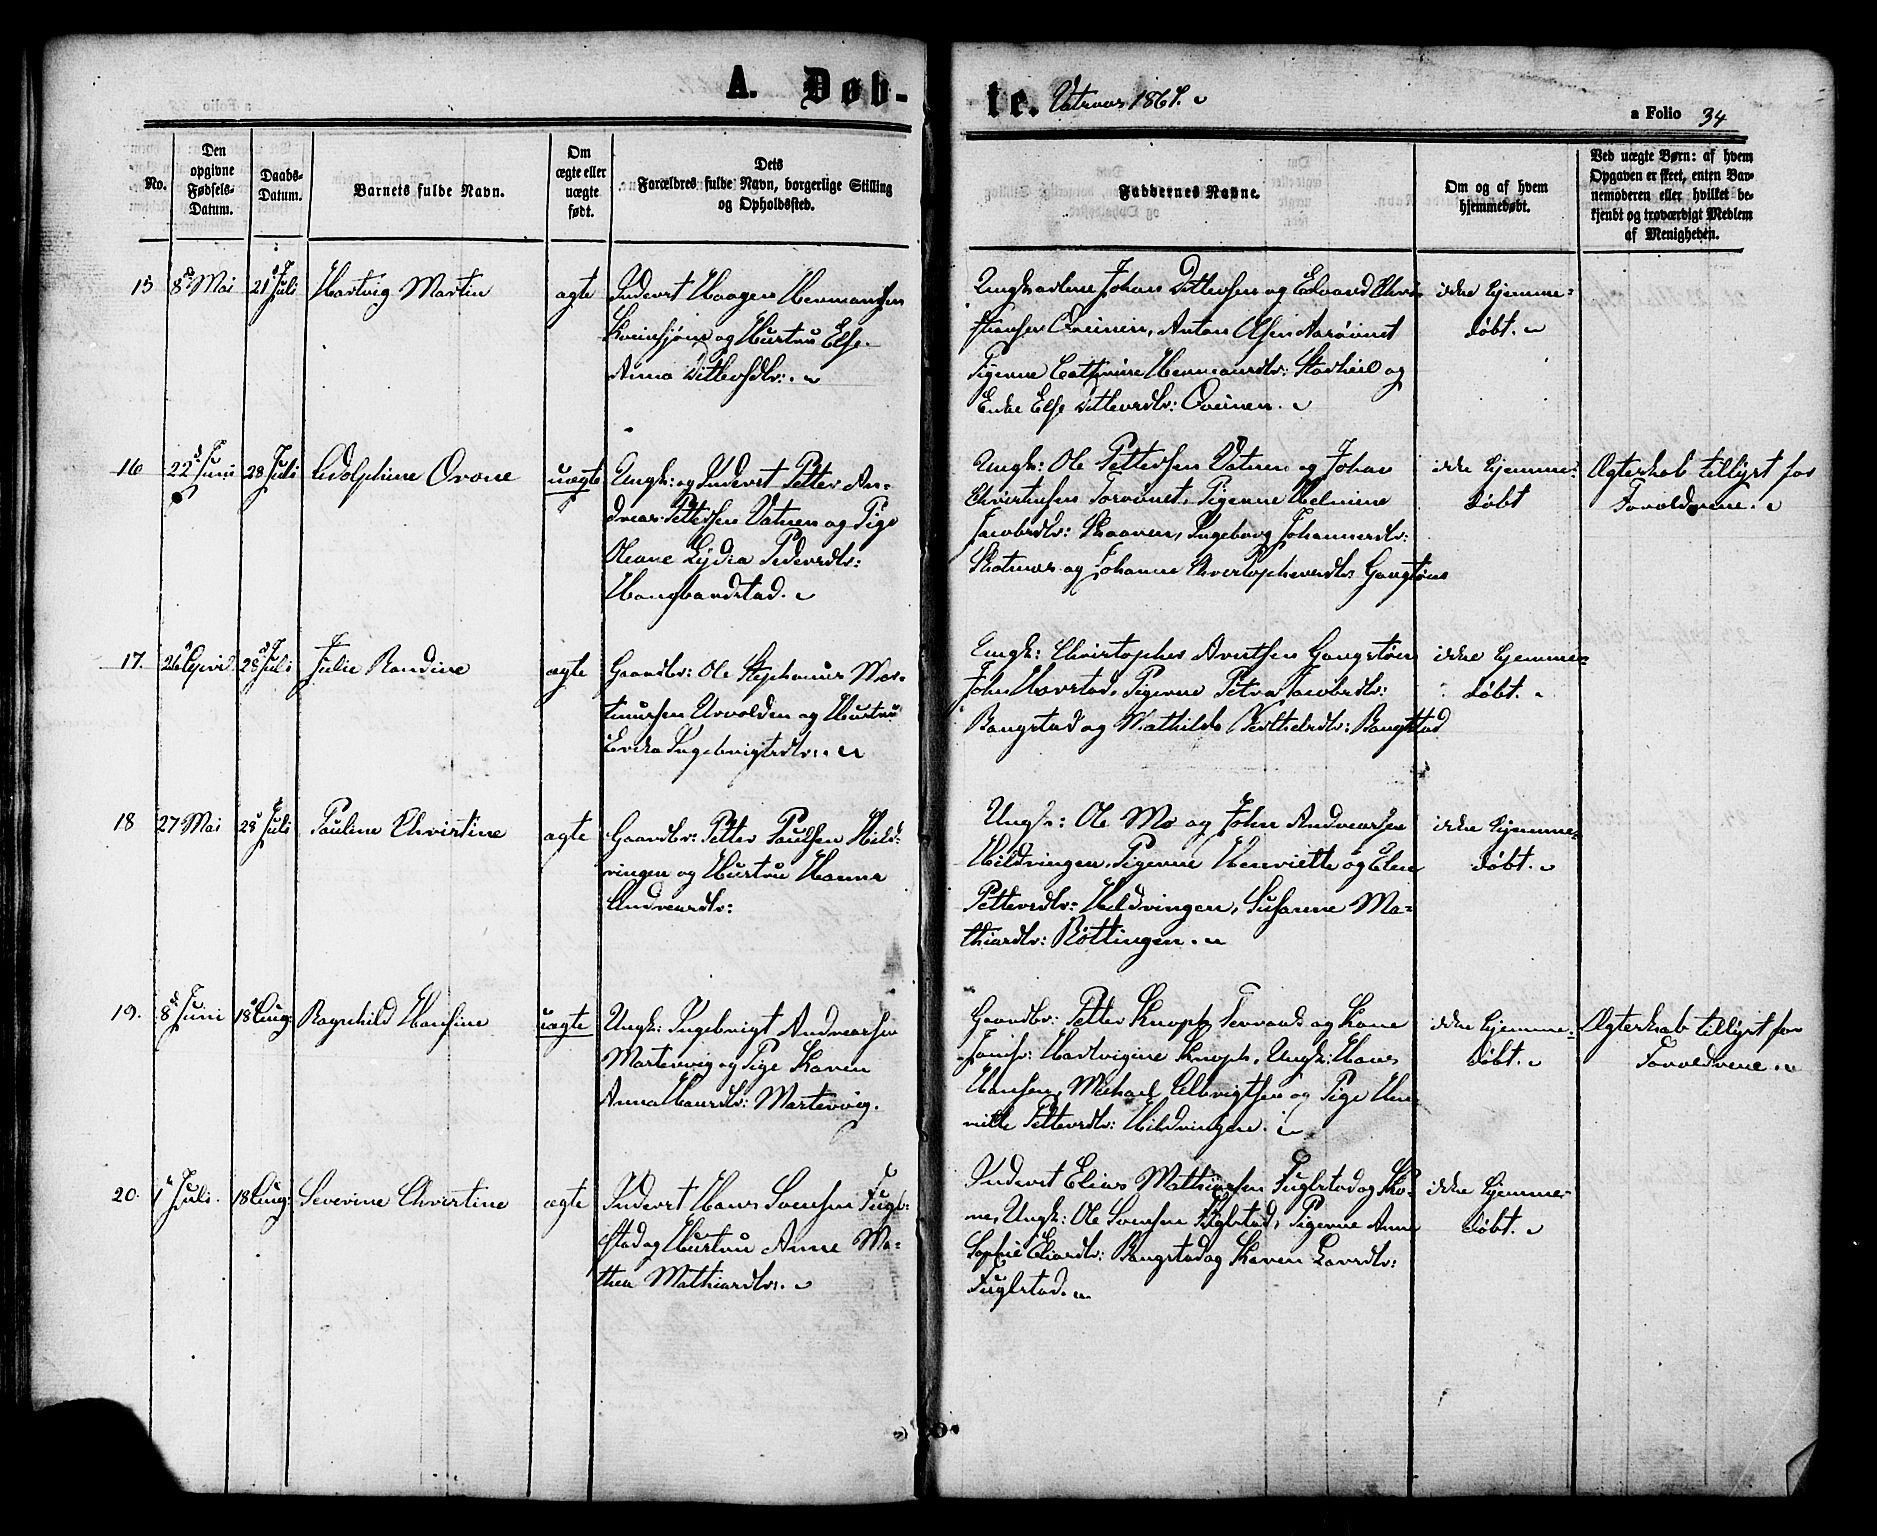 A. Døb-
te. Vatnaas 1867.
a Folio 34
No.
Den opgivne Fødsels-Datum.
Daabs-Datum.
Barnets fulde Navn.
Om ægte eller uægte født.
Dets Forældres fulde Navn, borgerlige Stilling og Opholdssted.
Faddernes Navne.
Om og af hvem hjemmedøbt.
Ved uægte Børn: af hvem Opgaven er skeet, enten Barnemoderen eller hvilket bekjendt og troværdigt Medlem af Menigheden.
15 8de Mai 21 Juli Hartvig Martin ægte
Inderst Haagen Hermansen
og Hustru Else
Anna Ditlevsdtr:
Ungkarlene Johan Ditlevsen og Edvard Chri-
stiansen Qveinen, Anton Olsen
Pigerne Cathrine Hermansdtr: og
Enke Else Ditlevsdtr: Qveinen.
ikke hjemme-
døbt.
16 22d Juni 28 Juli Adolphine Ovone uægte
Ungk: og Inderst Petter An-
dreas Pettersen Vatnen og Pige
Oleane Lydia Pedersdtr:
Ungk: Ole Pettersen Vatnen og Johan
Christensen Torvönet, Pigerne Helmine
Jacobsdtr: Skaaren, Ingeborg Johannesdtr:
og Johanne Christophersdtr: Gangstøen
ikke hjemme-
døbt
Ægteskab tillyst for
Forældrene.
17. 26 April 28 Juli Julie Randine ægte
Gaardbr: Ole Stephanus Mar-
tinussen Urvolden og Hustru
Ingebrigtsdtr:
Ungk: Christopher Arntsen Gangstøen
John Havstad, Pigerne Petra Jacobsdtr:
Bangstad og Mathilde Bangstad
ikke hjemme-
døbt.
18 27 Mai 28 Juli Pauline Christine ægte
Gaardbr: Petter Paulsen Hild-
ringen og Hustru Hanna
Andreasdtr:
Ungk: Ole Mo og John Andreassen
Hildringen, Pigerne Henriette og Elen
Pettersdtr: Hildringen, Susanne Ma-
thiasdtr: Røttingen.
ikke hjemme-
døbt.
19. 8de Juni 18 Aug: Ragnhild Hansine uægte
Ungk: Ingebrigt Andreassen
Martervig og Pige Karen
Anna Hansdtr: Martervig.
Gaardbr: Petter Knoph Terraak og Kone
Jomfr: Hartvigine Knoph, Ungk: Hans
Hansen, Michael Albrigtsen og Pige Hen-
riette Pettersdtr: Hildringen.
ikke hjemme-
døbt.
Ægteskab tillyst for
Forældrene.
20. 1 Juli. 18 Aug: Severine Christine ægte
Inderst Hans Svensen Fugl-
stad og Hustru Anne Ma-
thea Mathiasdtr:
Inderst Elias Mathiassen Fuglstad og Ko-
ne, Ungk: Ole Svensen Fuglstad, Pigerne Anne
Sophie Eliasdtr: Bangstad og Karen Larsdtr:
Fuglstad.
ikke hjemme-
døbt.